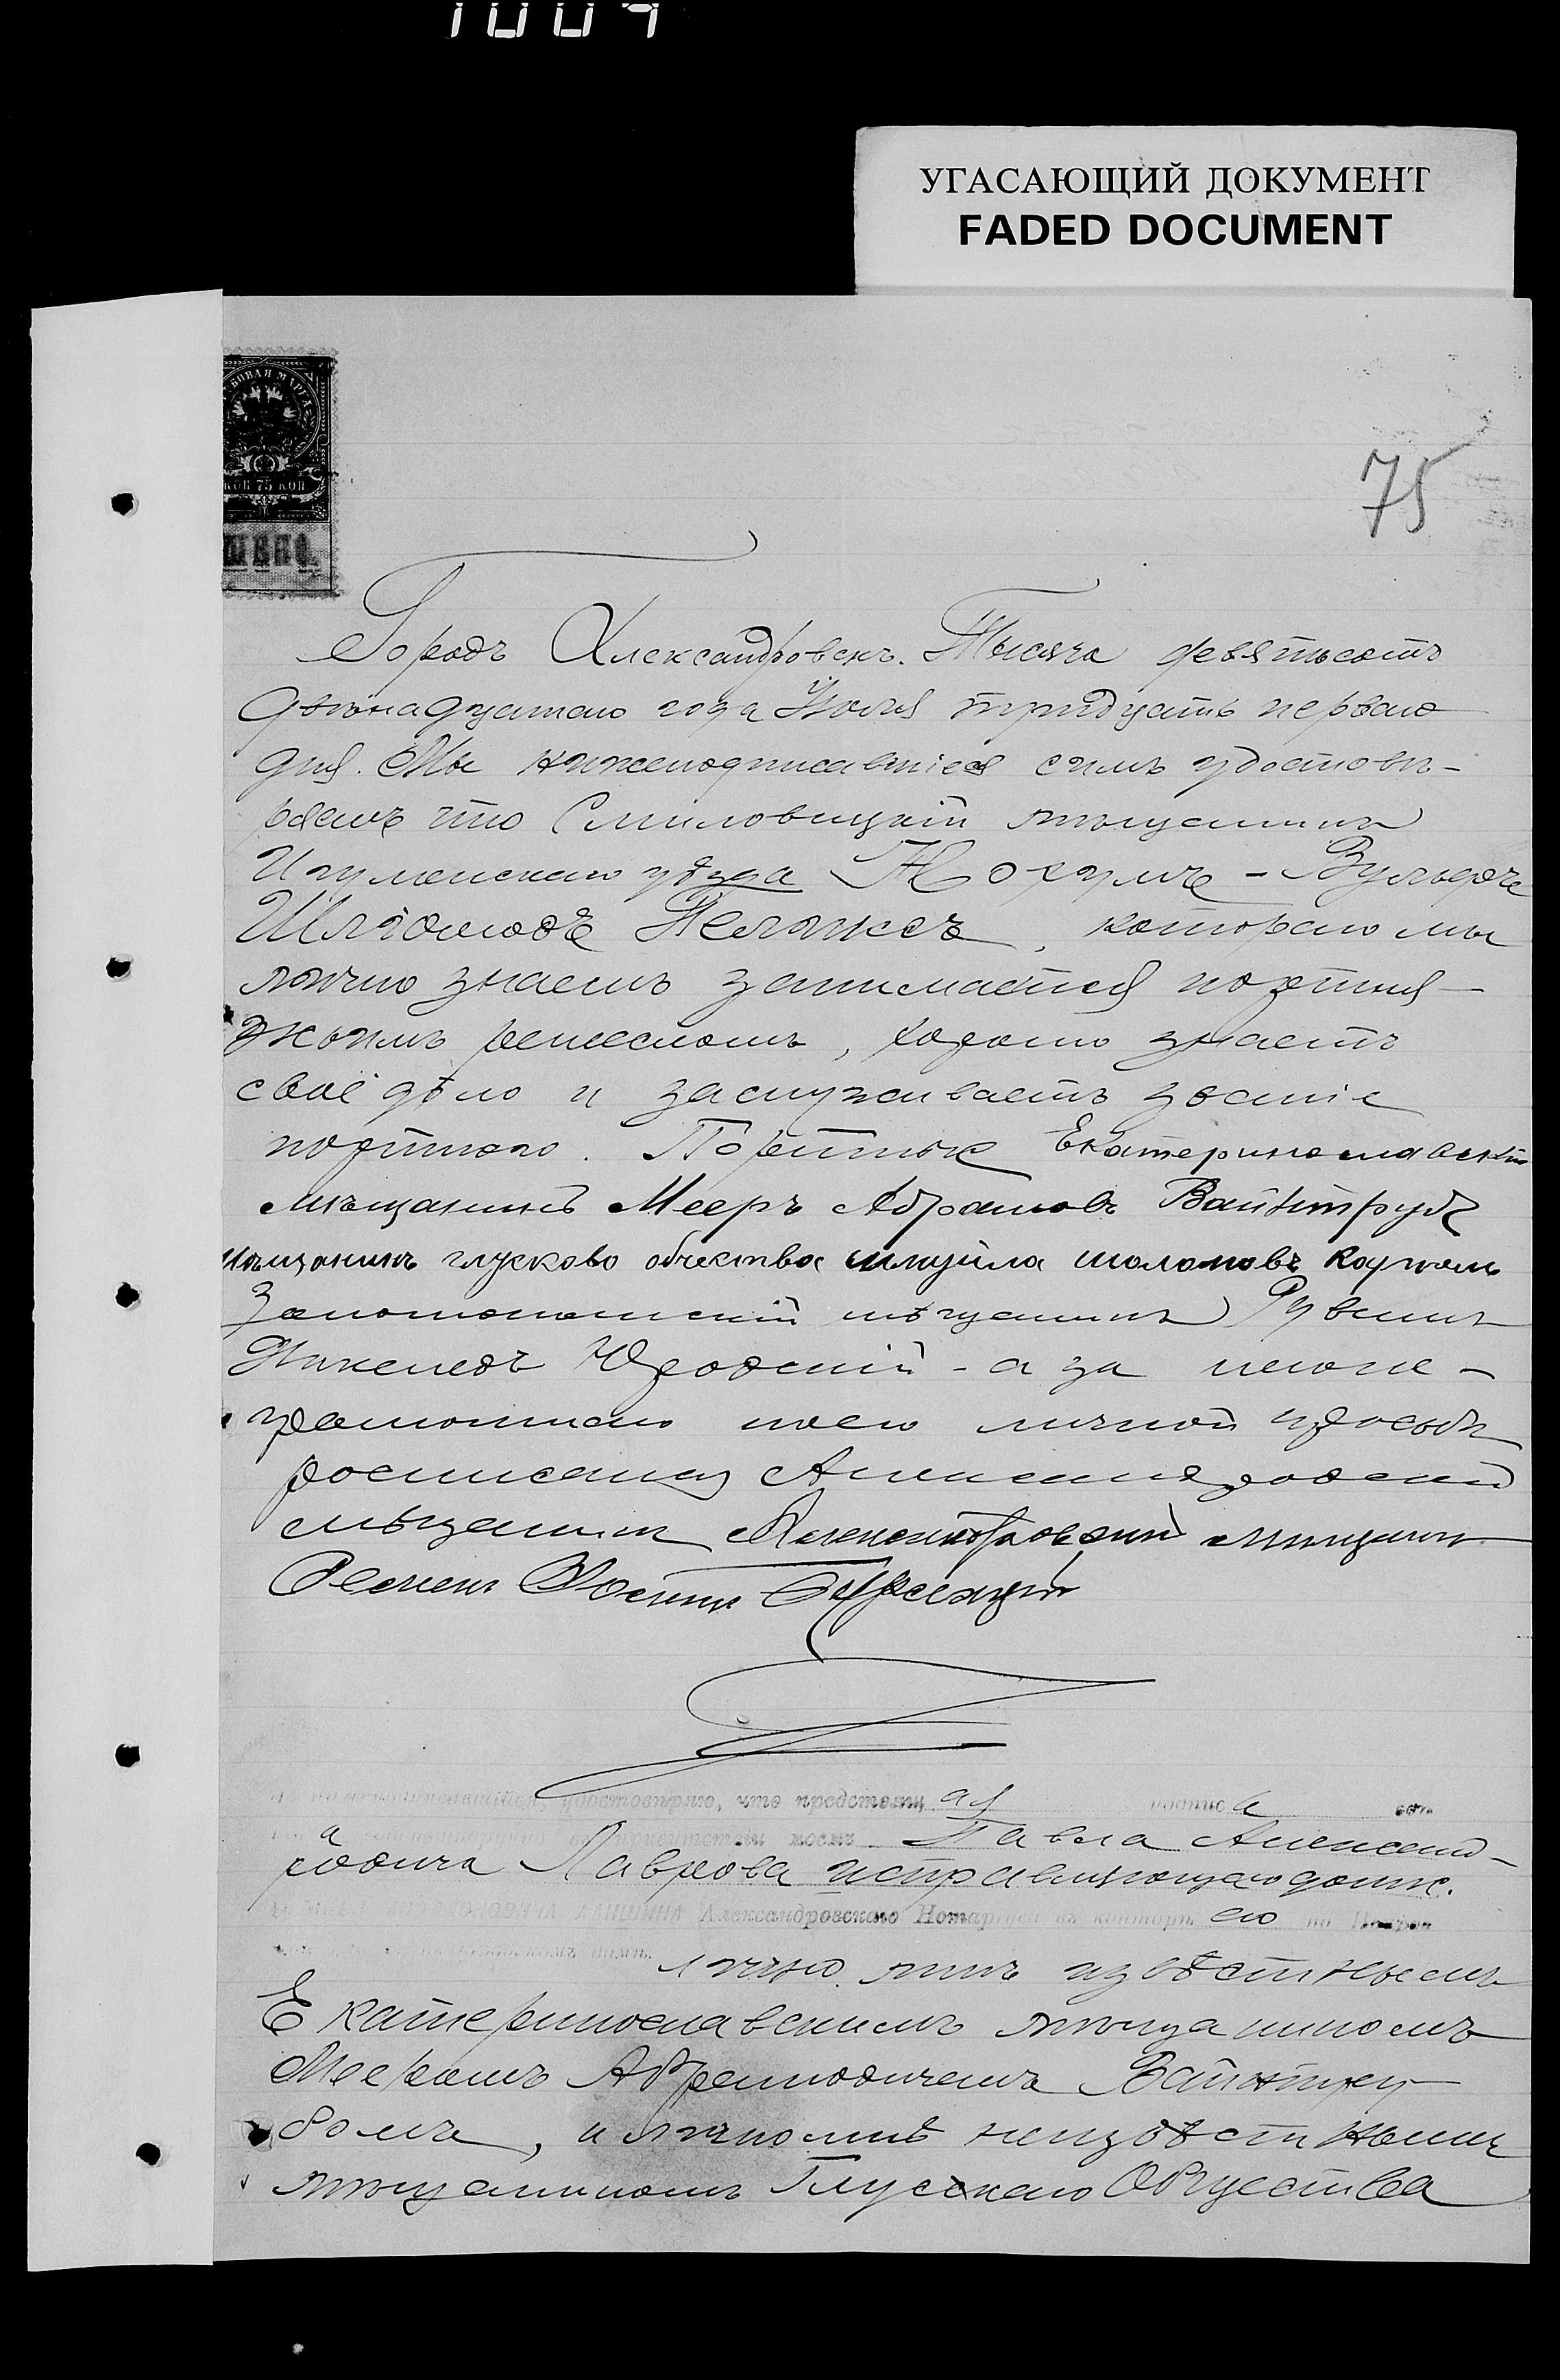 1004
УГАСАЮЩИЙ ДОКУМЕНТ
FADED DOCUMENT
БОВАЯ МАРКА
КОП 75 КОП
ШЕНО.
75
Городъ Александровскъ. Тысяча девятьсотъ
двѣнадцатаго года Іюля тридцать перваго
дня. Мы нижеподписавшіеся симъ удостовѣ-
ряемъ что Смиловицкій мѣщанинъ
Игуменскаго уѣзда Нохумъ - Вульфъ
Шліомовъ, котораго мы
лично знаемъ занимается портня-
жнымъ ремесломъ, хорошо знаетъ
своё дѣло и заслуживаетъ званіе
портного. Портные Екатеринославскій
мѣщанинъ Мееръ Абрамовъ Вайнтрубъ
мѣщанинъ глусково обчества шмуйла шоломовъ
мѣщанинъ Рувинъ
- а за него не-
грамотнаго по его личной просьбѣ
росписался Александровскій
мѣщанинъ Александровскій мѣщанинъ
Семенъ
удостовѣряю, что предстоящ ая подпис а
а присутствіи моемъ Павла Александ-
ровича Лаврова исправляющаго должн.
Александровскаго Нотаріуса въ конторѣ его по
лично мнѣ извѣстнымъ
Екатеринославскимъ мѣщаниномъ
Мееромъ Абрамовичемъ Вайнтру-
бомъ, и лично мнѣ неизвѣстными
мѣщаниномъ Глускаго Общества